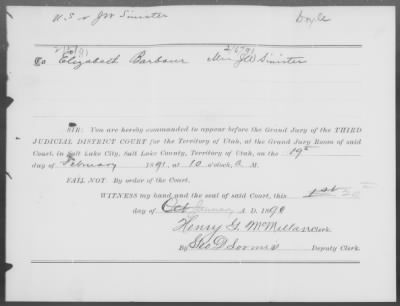 U.S. v JW Sinister Doyle
2/5/91 2/6791
To Elizabeth Barbour Mrs. JW Sinister
SIR: You are hereby commanded to appear before the Grand Jury of the THIRD
JUDICIAL DISTRICT COURT for the Territory of Utah, at the Grand Jury Room of said
Court, in Salt Lake City, Salt Lake County, Territory of Utah, on the 19th
day of February 1891, at 10 o'clock, a M.
FAIL NOT. By order of the Court.
WITNESS my hand and the seal of said Court, this 1st 20th
day of Oct January A. D. 1890
Henry G. McMillan Clerk.
By Geo D Loomis Deputy Clerk.